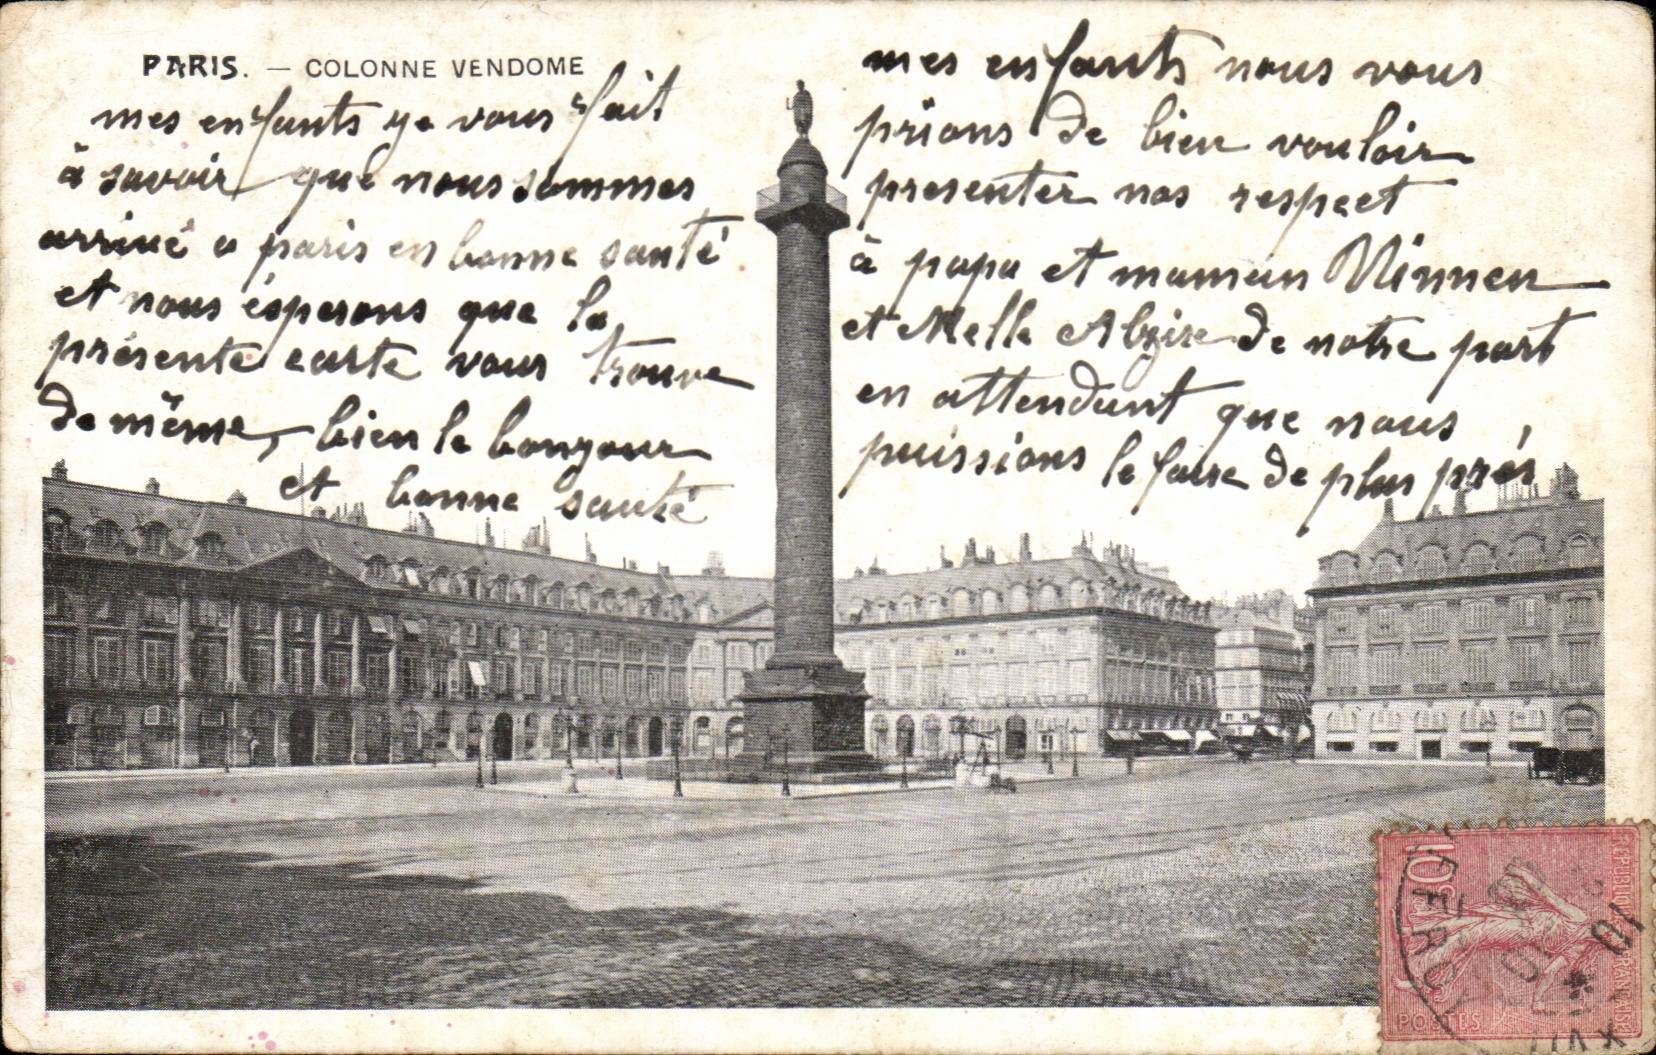 PARIS. — COLONNE VENDOME
mes enfants ye vous fait
à savoir que nous sommes
arrivé a paris en bonne santé
et nous ésperons que la
présente carte vous trouve
de même, bien le bonjour
et bonne santé
mes enfants nous vous
prions de bien vouloir
presenter nos respect
à papa et maman Vinnen
et Melle Alzire de notre part
en attendant que nous
puissions le faire de plus prés
10c
REPUBLIQUE FRANÇAISE
POSTES